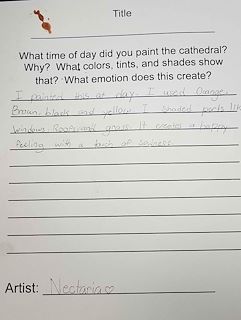 Title
What time of day did you paint the cathedral?
Why?  What colors, tints, and shades show
that?  What emotion does this create?
I painted this at day. I used Orange,
Brown, black and yellow I shaded parts like
windows, Roofs and grass. It creates a happy
feeling with a touch of sadness.
Artist: Nectaria ♡